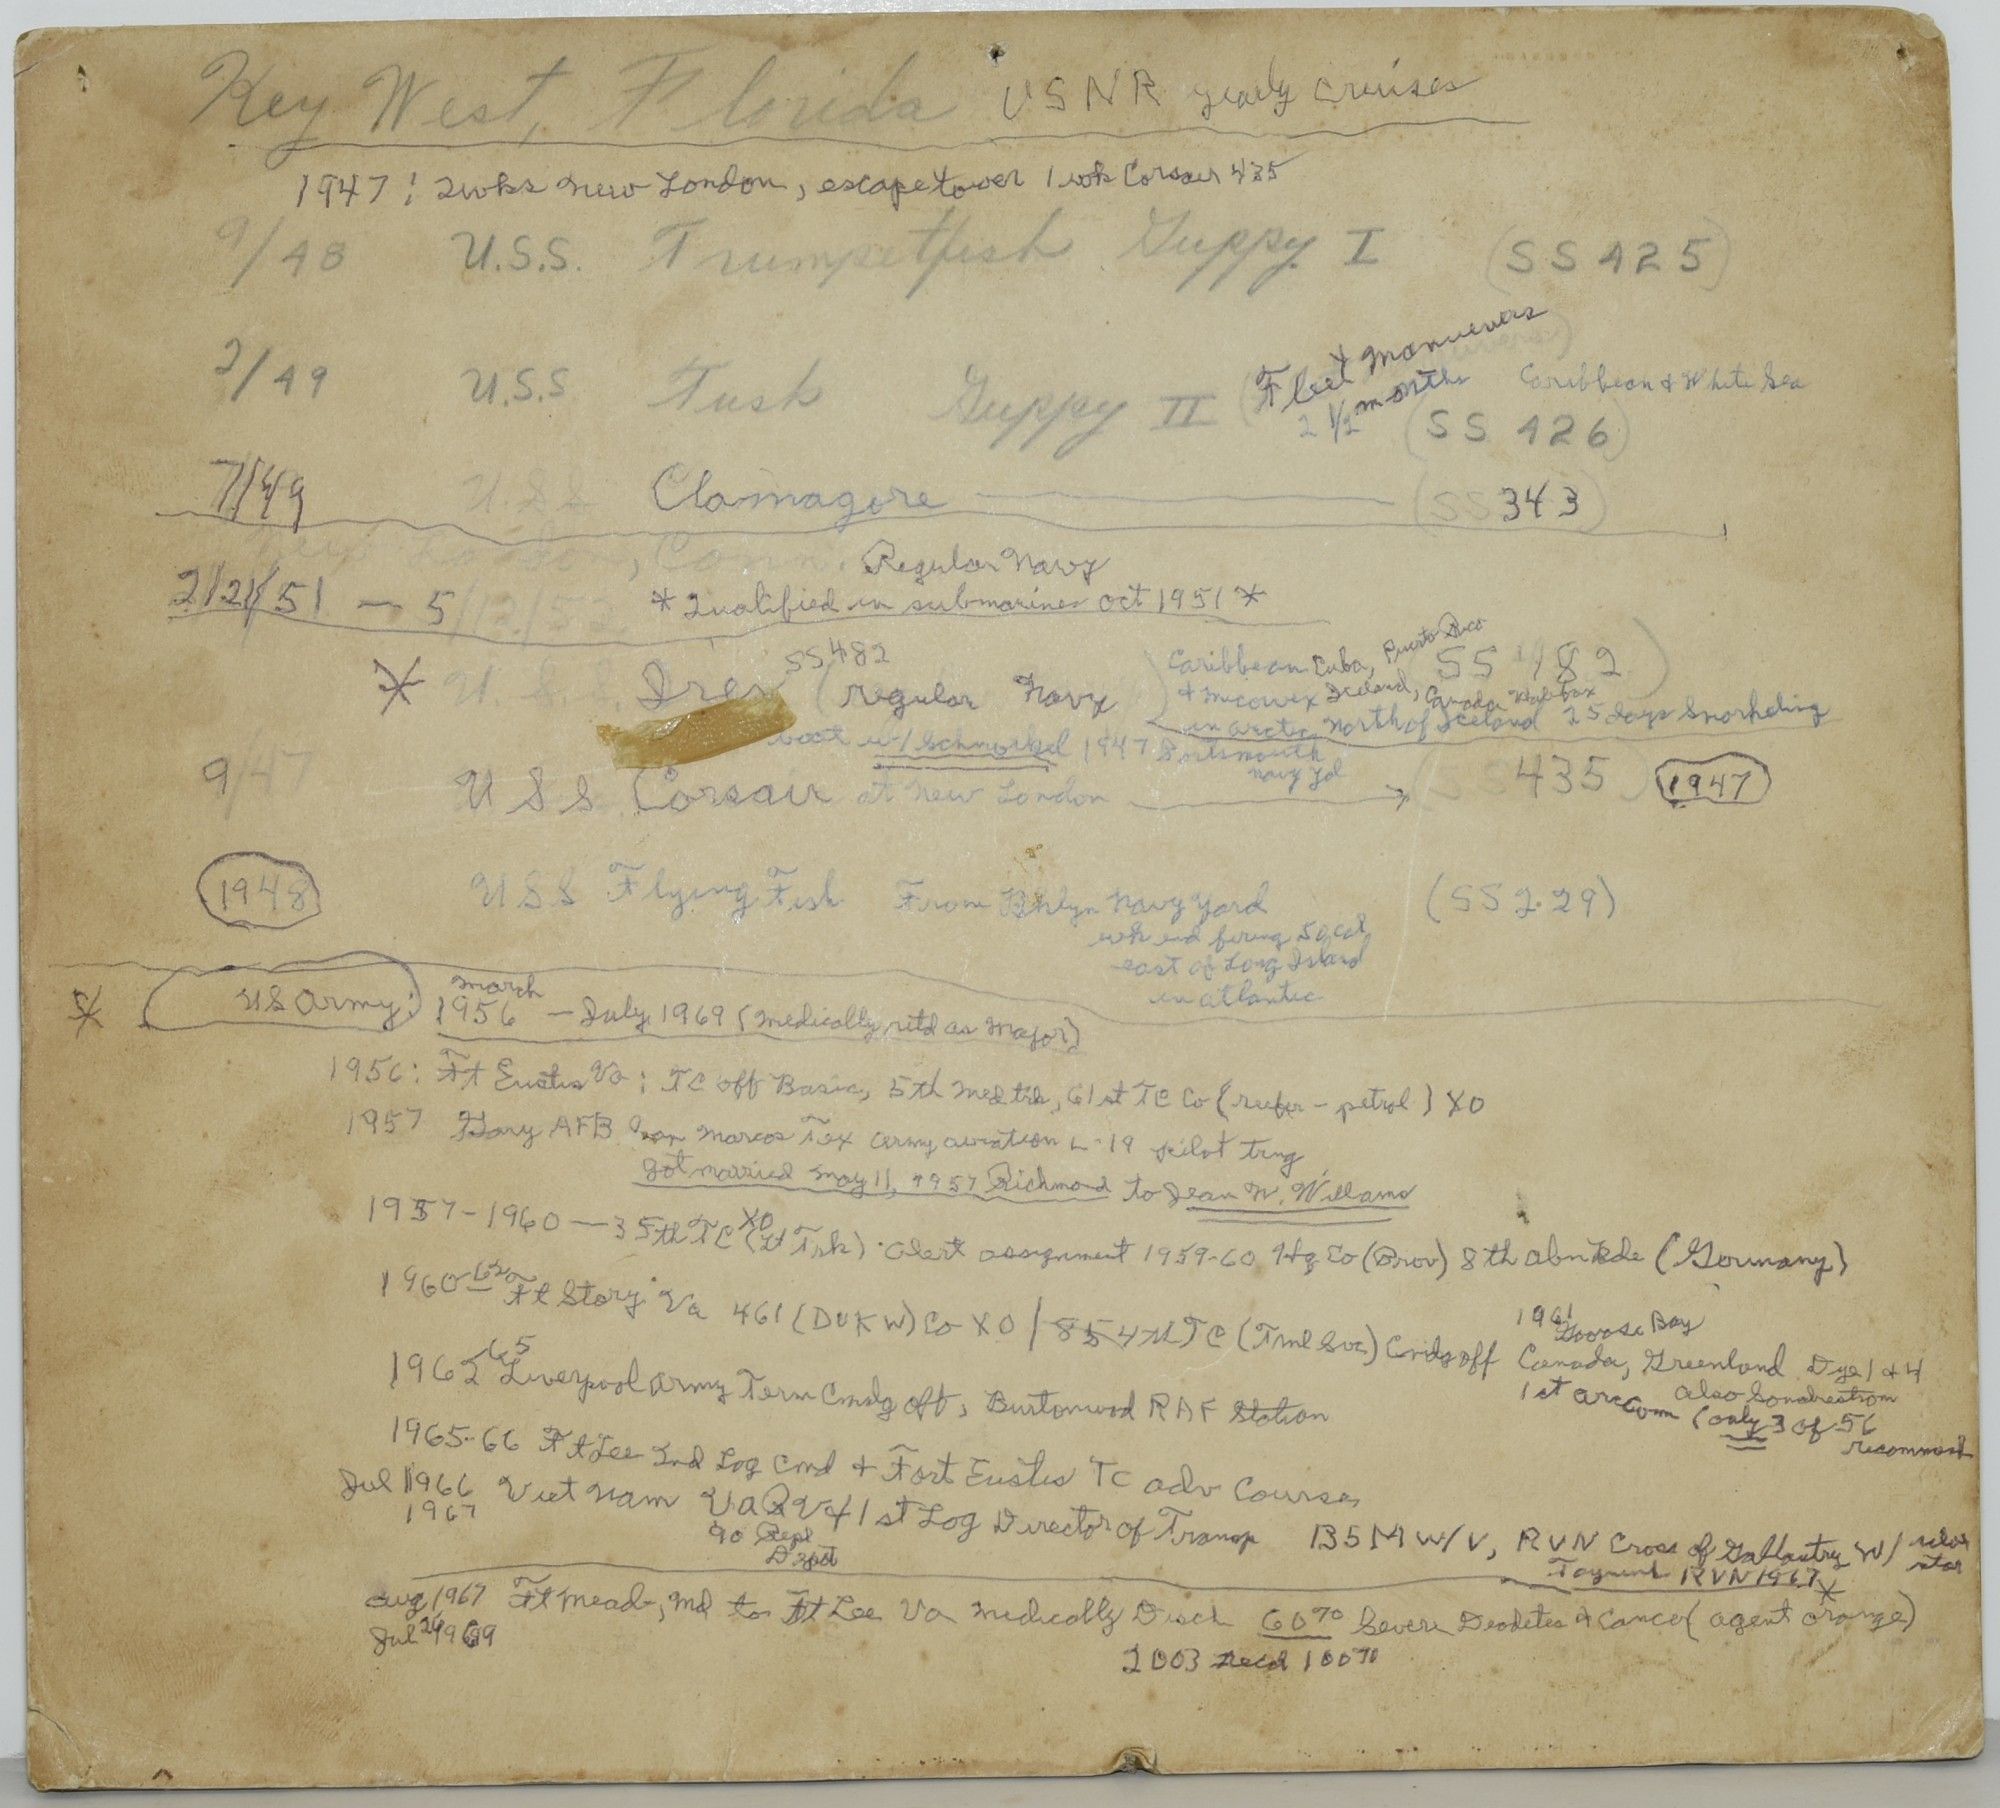 Key West, Florida USNR yearly cruises
1947: 2wks New London, escape tower 1 wk Corsair 435
9/48 U.S.S. Trumpetfish Guppy I (SS 425)
2/49 U.S.S Tusk Guppy II (Fleet Manuevers
2 1/2 months Caribbean & White Sea
(SS 426)
7/49 U.S.S. Clamagore (SS 343)
New London, Conn. Regular Navy
2/21/51 - 5/12/52 * Qualified in submarines Oct 1951 *
* U.S.S. Irex SS482 (regular Navy) Caribbean Cuba, Puerto Rico SS 482
Iceland, Canada Halifax
in arctic, north of Iceland 25 days Snorkeling
boat w/ Schnorkel 1947 Portsmouth
Navy Yd
9/47 U S S Corsair at New London (SS 435) 1947
1948 USS Flying Fish From Bklyn Navy Yard (SS 229)
wk end firing 50 cal
east of Long Island
in atlantic
* US Army: March 1956 - July 1969 (medically retd as Major)
1956: Ft Eustis Va: TC off Basic, 5th Med trk, 61st TC Co (reefer - petrol) XO
1957 Gary AFB San Marcos Tex army aviation L-19 pilot trng
got married May 11, 1957 Richmond to Jean W. Williams
1957-1960 - 35th TC XO (Lt Trk) alert assignment 1959-60 Hq Co (Prov) 8th abn (Germany)
1960-62 Ft Story Va 461 (DUKW) Co XO / 854th TC (Tml Svc) Cmdg off 1961 Goose Bay
Canada, Greenland Dye 1 & 4
also Sondrestrom
1st arccom (only 3 of 56
recommend
1962-65 Liverpool Army Term Cmdg off, Burtonwood RAF Station
1965-66 Ft Lee 2nd Log Cmd & Fort Eustis TC adv Course
Jul 1966 Viet Nam 1st Log Director of Transp BSM w/V, RVN Cross of Gallantry w/ silver star
1967 90 Repl
Depot
RVN 1967 *
Aug 1967 Ft Meade, Md to Ft Lee Va Medically Disch 60% Severe Deabetes & Cancer (agent orange)
Jul 24 1969
2003 recd 100%